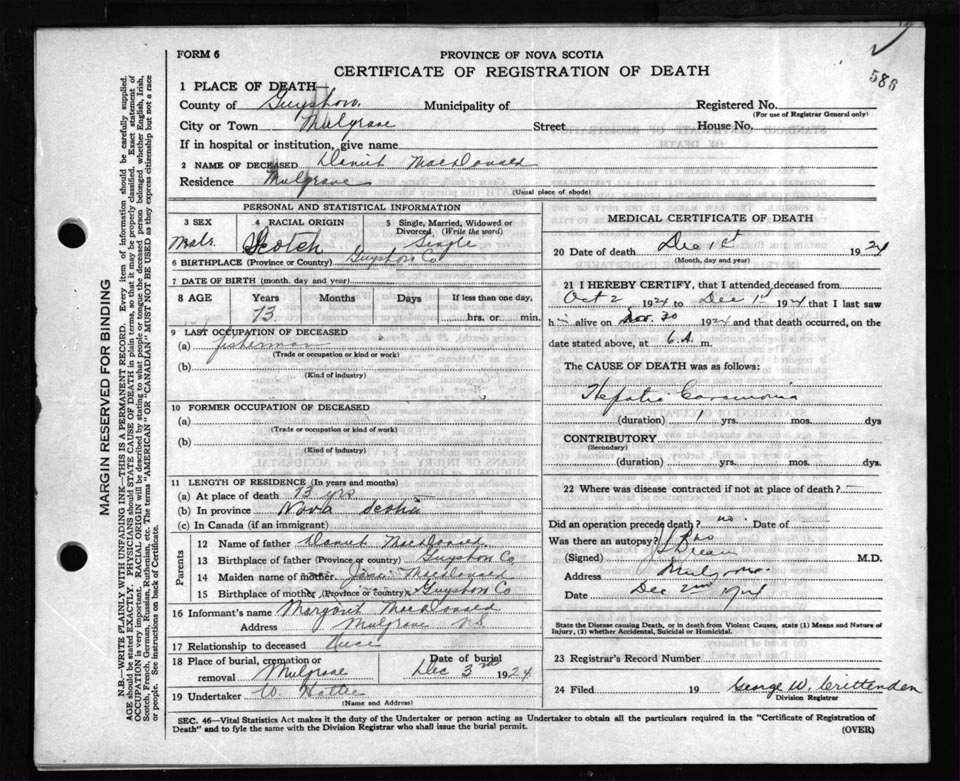 586
FORM 6
PROVINCE OF NOVA SCOTIA
CERTIFICATE OF REGISTRATION OF DEATH
MARGIN RESERVED FOR BINDING
N.B.—WRITE PLAINLY WITH UNFADING INK—THIS IS A PERMANENT RECORD. Every item of information should be carefully supplied.
AGE should be stated EXACTLY. PHYSICIANS should STATE CAUSE OF DEATH in plain terms, so that it may be properly classified. Exact statement of
OCCUPATION is very important. RACIAL ORIGIN will be described by stating to what people or tongue the deceased person belonged whether English, Irish,
Scotch, French, German, Russian, Ruthenian, etc. The terms "AMERICAN" OR "CANADIAN" MUST NOT BE USED as they express citizenship but not a race
or people. See instructions on back of Certificate.
1 PLACE OF DEATH—
County of Guysboro. Municipality of Registered No.
(For use of Registrar General only)
City or Town Mulgrave Street House No.
If in hospital or institution, give name
2 NAME OF DECEASED MacDonald
Residence Mulgrave
(Usual place of abode)
PERSONAL AND STATISTICAL INFORMATION
3 SEX 4 RACIAL ORIGIN 5 Single, Married, Widowed or Divorced (Write the word)
Male. Scotch Single
6 BIRTHPLACE (Province or Country) Guysboro Co
7 DATE OF BIRTH (month, day and year)
8 AGE Years Months Days If less than one day,
73 hrs. or min.
9 LAST OCCUPATION OF DECEASED
(a) fisherman
(Trade or occupation or kind or work)
(b)
(Kind of industry)
10 FORMER OCCUPATION OF DECEASED
(a)
(Trade or occupation or kind of work)
(b)
(Kind of industry)
11 LENGTH OF RESIDENCE (In years and months)
(a) At place of death 73 yrs
(b) In province Nova Scotia
(c) In Canada (if an immigrant)
Parents
12 Name of father MacDonald
13 Birthplace of father (Province or country) Guysboro Co
14 Maiden name of mother MacDonald
15 Birthplace of mother (Province or country) Guysboro Co
16 Informant's name Margaret MacDonald
Address Mulgrave NS
17 Relationship to deceased Niece
18 Place of burial, cremation or removal Mulgrave Date of burial Dec 3rd 1924
19 Undertaker W.
(Name and Address)
MEDICAL CERTIFICATE OF DEATH
20 Date of death Dec 1st 1924
(Month, day and year)
21 I HEREBY CERTIFY, that I attended deceased from
Oct 2 1924 to Dec 1st 1924 that I last saw
him alive on Nov. 30 1924 and that death occurred, on the
date stated above, at 6 A. m.
The CAUSE OF DEATH was as follows:
Hepatic Carcinoma
(duration) 1 yrs. mos. dys
CONTRIBUTORY
(Secondary)
(duration) yrs. mos. dys.
22 Where was disease contracted if not at place of death? —
Did an operation precede death? no. Date of
Was there an autopsy? no
(Signed) M.D.
Address Mulgrave.
Date Dec 2nd 1924
State the Disease causing Death, or in death from Violent Causes, state (1) Means and Nature of
Injury, (2) whether Accidental, Suicidal or Homicidal.
23 Registrar's Record Number
24 Filed 19 George W. Crittenden
Division Registrar
SEC. 46—Vital Statistics Act makes it the duty of the Undertaker or person acting as Undertaker to obtain all the particulars required in the "Certificate of Registration of
Death" and to fyle the same with the Division Registrar who shall issue the burial permit.
(OVER)